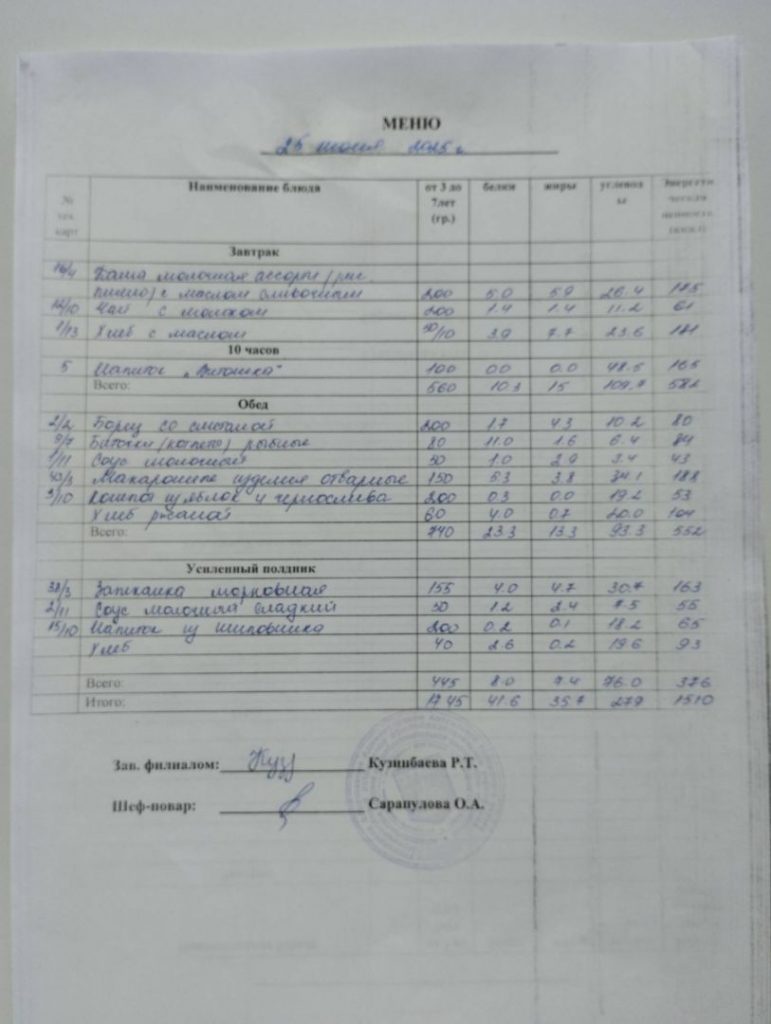 МЕНЮ
25 июня 2025 г.
№ тех. карт Наименование блюда от 3 до 7лет (гр.) белки жиры углеводы Энергетическая
Завтрак
Каша молочная ассорти (рис
пшено) с маслом сливочным 200 5.0 5.9 26.4
Чай с молоком 200 1.4 1.4 11.2 61
1/13 Хлеб с маслом 30/10 3.9 7.7 23.6
10 часов
5 Напиток „Витошка" 100 0.0 0.0 48.5 165
Всего: 560 10.3 15 109.7 582
Обед
2/2 Борщ со сметаной 200 1.7 4.3 10.2 80
9/7 Биточки (котлета) рыбные 80 11.0 1.6 6.4 84
1/11 Соус молочный 50 1.0 2.9 3.4 43
43/3 Макаронные изделия отварные 150 5.3 3.8 34.1 188
3/10 Компот из яблок и чернослива 200 0.3 0.0 19.2 53
Хлеб ржаной 60 4.0 0.7 20.0 104
Всего: 740 23.3 13.3 93.3 552
Усиленный полдник
38/3 Запеканка морковная 155 4.0 4.7 30.7 163
2/11 Соус молочный сладкий 50 1.2 2.4 7.5 55
15/10 Напиток из шиповника 200 0.2 0.1 18.2 65
Хлеб 40 2.6 0.2 19.6 93
Всего: 445 8.0 7.4 76.0 376
Итого: 1745 41.6 35.7 279 1510
Зав. филиалом: Куз Кузинбаева Р.Т.
Шеф-повар: Сарапулова О.А.